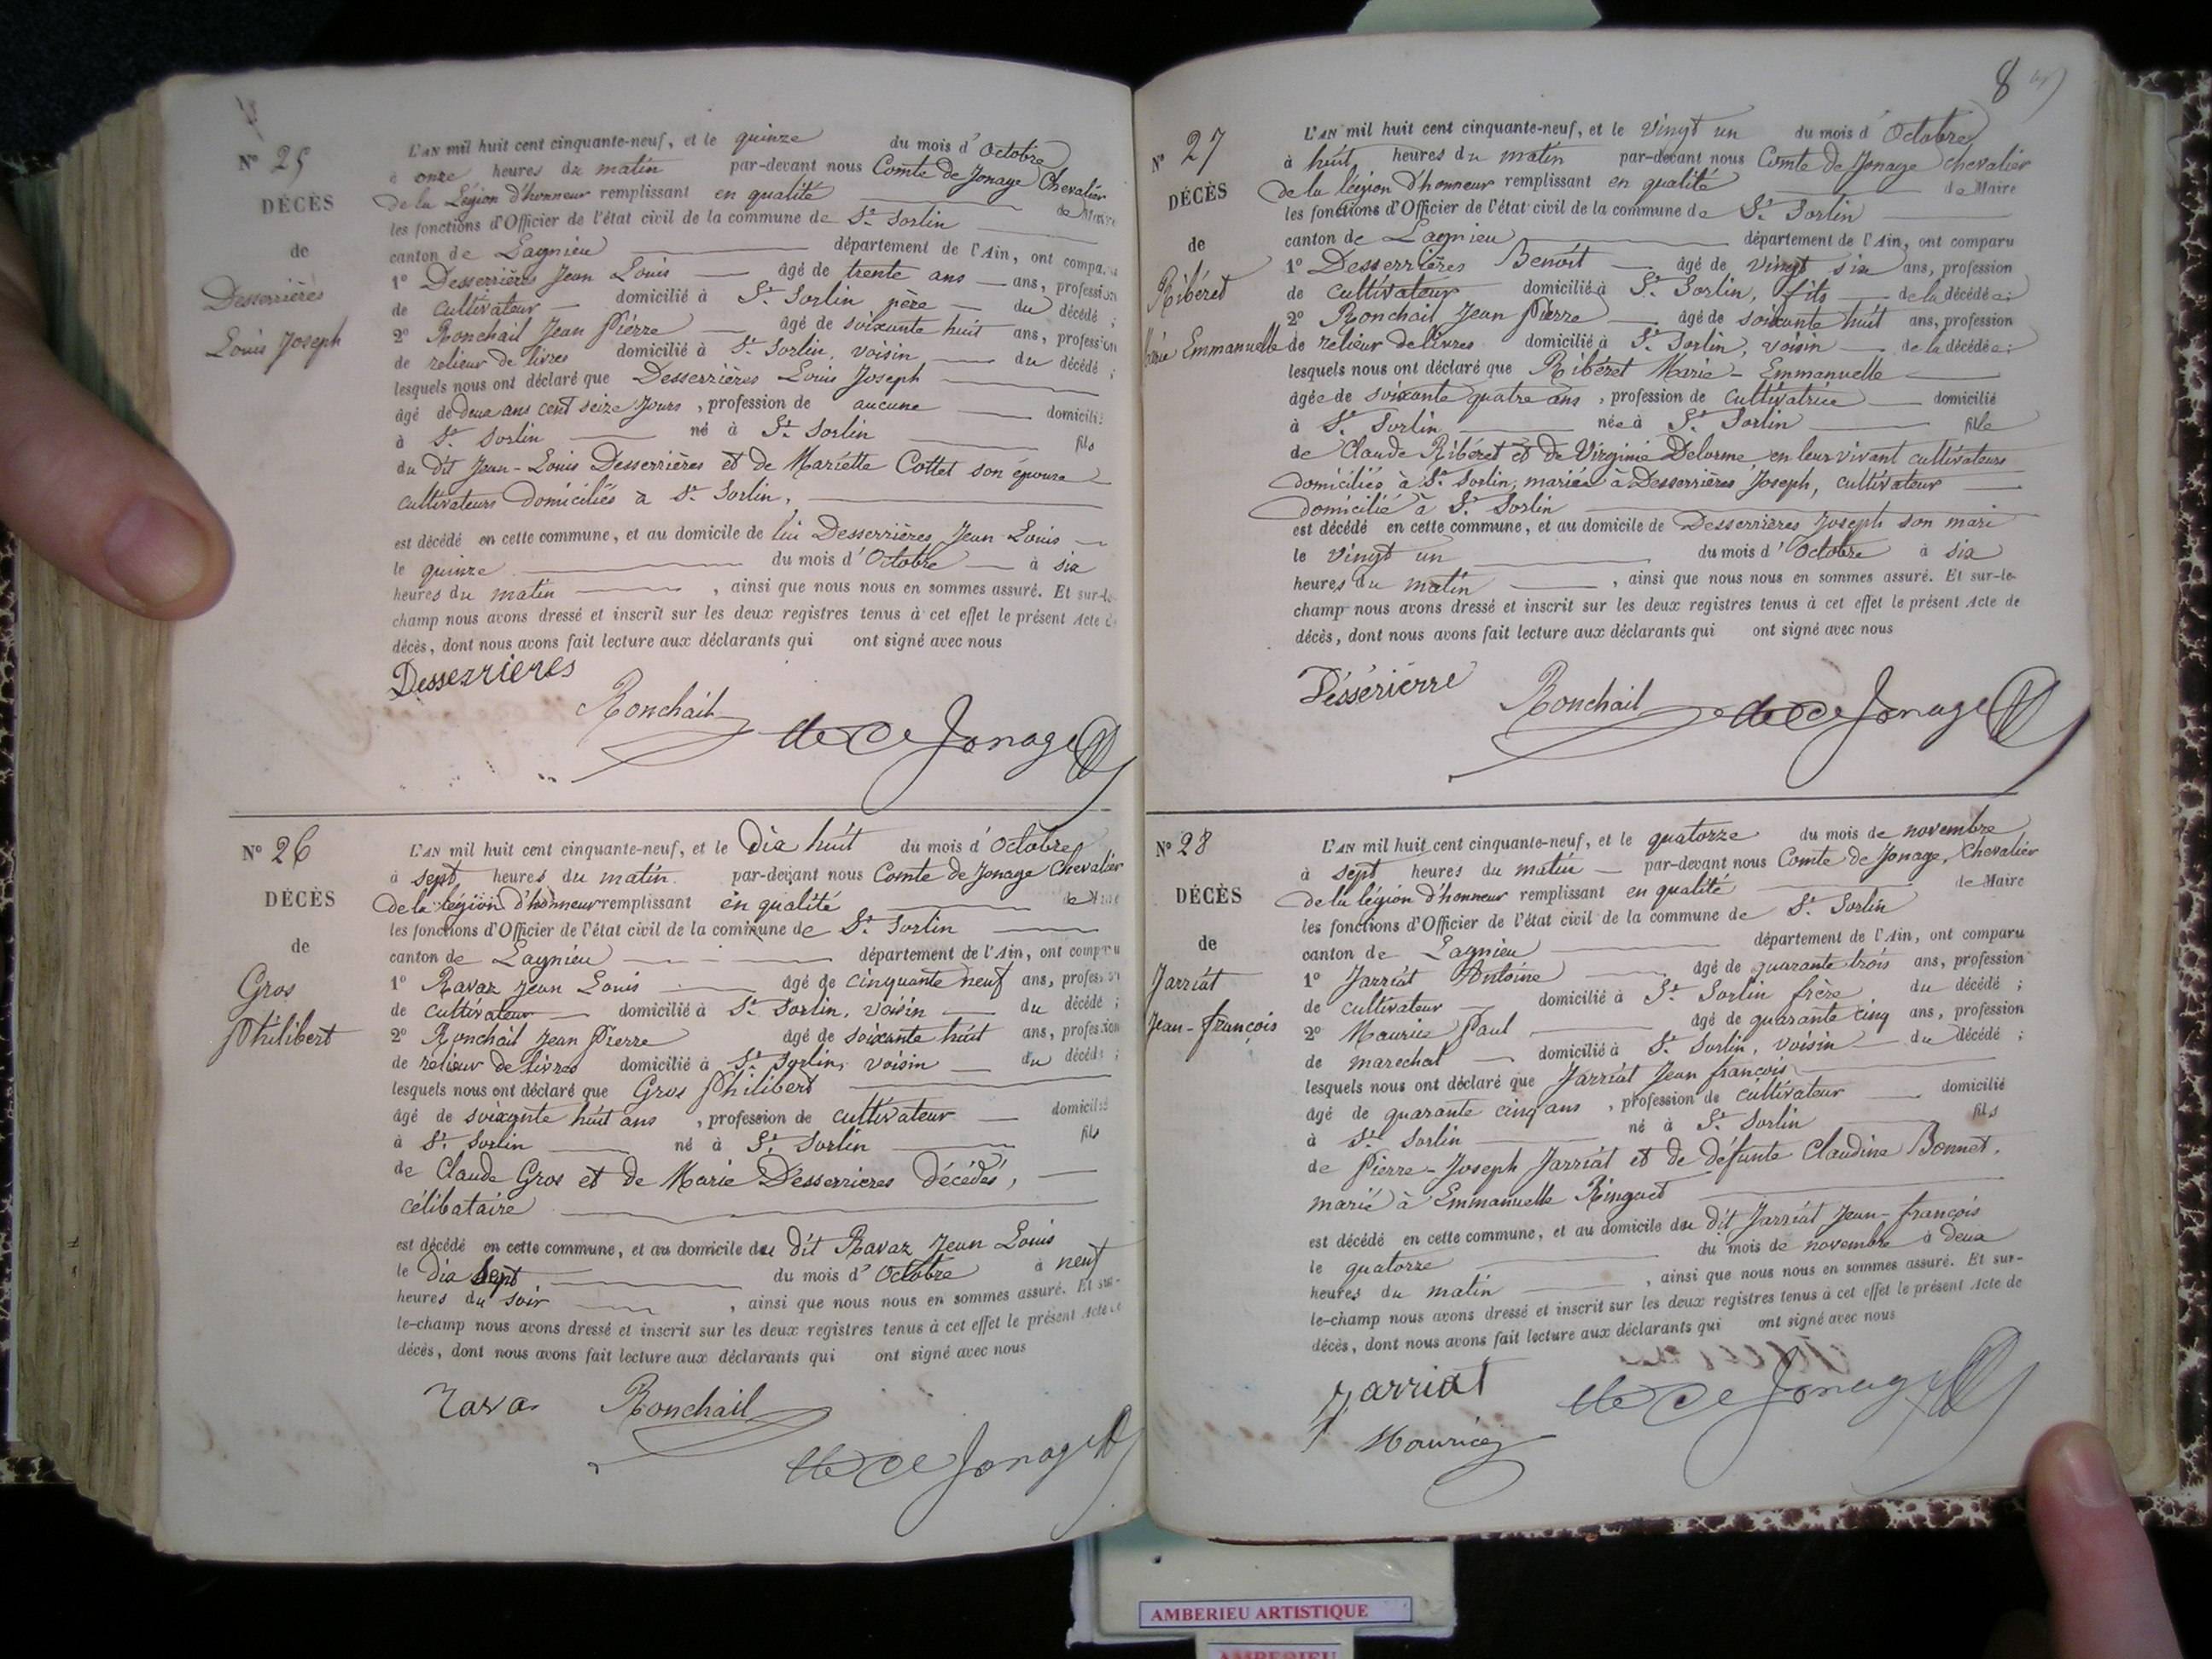 Nº 25
DÉCÈS
de
Desserrières
Louis Joseph
L'AN mil huit cent cinquante-neuf, et le quinze du mois d'Octobre
à onze heures du matin par-devant nous Comte de Jonage Chevalier
de la Légion d'honneur remplissant en qualité de Maire
les fonctions d'Officier de l'état civil de la commune de St. Sorlin
canton de Lagnieu département de l'Ain, ont comparu
1º Desserrières Jean Louis âgé de trente ans ans, profession
de cultivateur domicilié à St. Sorlin père du décédé ;
2º Ronchail Jean Pierre âgé de soixante huit ans, profession
de relieur de livres domicilié à St. Sorlin, voisin du décédé ;
lesquels nous ont déclaré que Desserrières Louis Joseph
âgé de deux ans cent seize jours, profession de aucune domicilié
à St. Sorlin né à St. Sorlin fils
du dit Jean-Louis Desserrières et de Mariette Cottet son épouse
cultivateurs domiciliés à St. Sorlin,
est décédé en cette commune, et au domicile de lui Desserrières Jean Louis
le quinze du mois d'Octobre à six
heures du matin , ainsi que nous nous en sommes assuré. Et sur-le-
champ nous avons dressé et inscrit sur les deux registres tenus à cet effet le présent Acte de
décès, dont nous avons fait lecture aux déclarants qui ont signé avec nous
Desserrieres
Ronchail
de Jonage
Nº 26
DÉCÈS
de
Gros
Philibert
L'AN mil huit cent cinquante-neuf, et le dix huit du mois d'Octobre
à sept heures du matin par-devant nous Comte de Jonage Chevalier
de la légion d'honneur remplissant en qualité de Maire
les fonctions d'Officier de l'état civil de la commune de St. Sorlin
canton de Lagnieu département de l'Ain, ont comparu
1º Ravaz Jean Louis âgé de cinquante neuf ans, profession
de cultivateur domicilié à St. Sorlin, voisin du décédé ;
2º Ronchail Jean Pierre âgé de soixante huit ans, profession
de relieur de livres domicilié à St. Sorlin, voisin du décédé ;
lesquels nous ont déclaré que Gros Philibert
âgé de soixante huit ans , profession de cultivateur domicilié
à St. Sorlin né à St. Sorlin fils
de Claude Gros et de Marie Desserrieres décédés,
célibataire
est décédé en cette commune, et au domicile du dit Ravaz Jean Louis
le dix sept du mois d'Octobre à neuf
heures du soir , ainsi que nous nous en sommes assuré. Et sur-
le-champ nous avons dressé et inscrit sur les deux registres tenus à cet effet le présent Acte de
décès, dont nous avons fait lecture aux déclarants qui ont signé avec nous
Ravaz
Ronchail
de Jonage
8
Nº 27
DÉCÈS
de
Ribéret
Marie Emmanuelle
L'AN mil huit cent cinquante-neuf, et le vingt un du mois d'Octobre
à huit heures du matin par-devant nous Comte de Jonage Chevalier
de la légion d'honneur remplissant en qualité de Maire
les fonctions d'Officier de l'état civil de la commune de St. Sorlin
canton de Lagnieu département de l'Ain, ont comparu
1º Desserrières Benoît âgé de vingt six ans, profession
de cultivateur domicilié à St. Sorlin, fils de la décédée ;
2º Ronchail Jean Pierre âgé de soixante huit ans, profession
de relieur de livres domicilié à St. Sorlin, voisin de la décédée ;
lesquels nous ont déclaré que Ribéret Marie-Emmanuelle
âgée de soixante quatre ans , profession de cultivatrice domicilié
à St. Sorlin née à St. Sorlin fille
de Claude Ribéret et de Virginie Delorme en leur vivant cultivateurs
domiciliés à St. Sorlin, mariée à Desserrières Joseph, cultivateur
domicilié à St. Sorlin
est décédé en cette commune, et au domicile de Desserrières Joseph son mari
le vingt un du mois d'Octobre à six
heures du matin , ainsi que nous nous en sommes assuré. Et sur-le-
champ nous avons dressé et inscrit sur les deux registres tenus à cet effet le présent Acte de
décès, dont nous avons fait lecture aux déclarants qui ont signé avec nous
Désséríerre
Ronchail
de Jonage
Nº 28
DÉCÈS
de
Jarriat
Jean-françois
L'AN mil huit cent cinquante-neuf, et le quatorze du mois de novembre
à sept heures du matin par-devant nous Comte de Jonage, Chevalier
de la légion d'honneur remplissant en qualité de Maire
les fonctions d'Officier de l'état civil de la commune de St. Sorlin
canton de Lagnieu département de l'Ain, ont comparu
1º Jarriat Antoine âgé de quarante trois ans, profession
de cultivateur domicilié à St. Sorlin frère du décédé ;
2º Maurice Paul âgé de quarante cinq ans, profession
de marechal domicilié à St. Sorlin, voisin du décédé ;
lesquels nous ont déclaré que Jarriat Jean françois
âgé de quarante cinq ans , profession de cultivateur domicilié
à St. Sorlin né à St. Sorlin fils
de Pierre-Joseph Jarriat et de défunte Claudine Bonnet,
marié à Emmanuelle Ringuet
est décédé en cette commune, et au domicile du dit Jarriat Jean-françois
le quatorze du mois de novembre à deux
heures du matin , ainsi que nous nous en sommes assuré. Et sur-
le-champ nous avons dressé et inscrit sur les deux registres tenus à cet effet le présent Acte de
décès, dont nous avons fait lecture aux déclarants qui ont signé avec nous
Jarriat
de Jonage
Maurice
AMBERIEU ARTISTIQUE
AMBERIEU